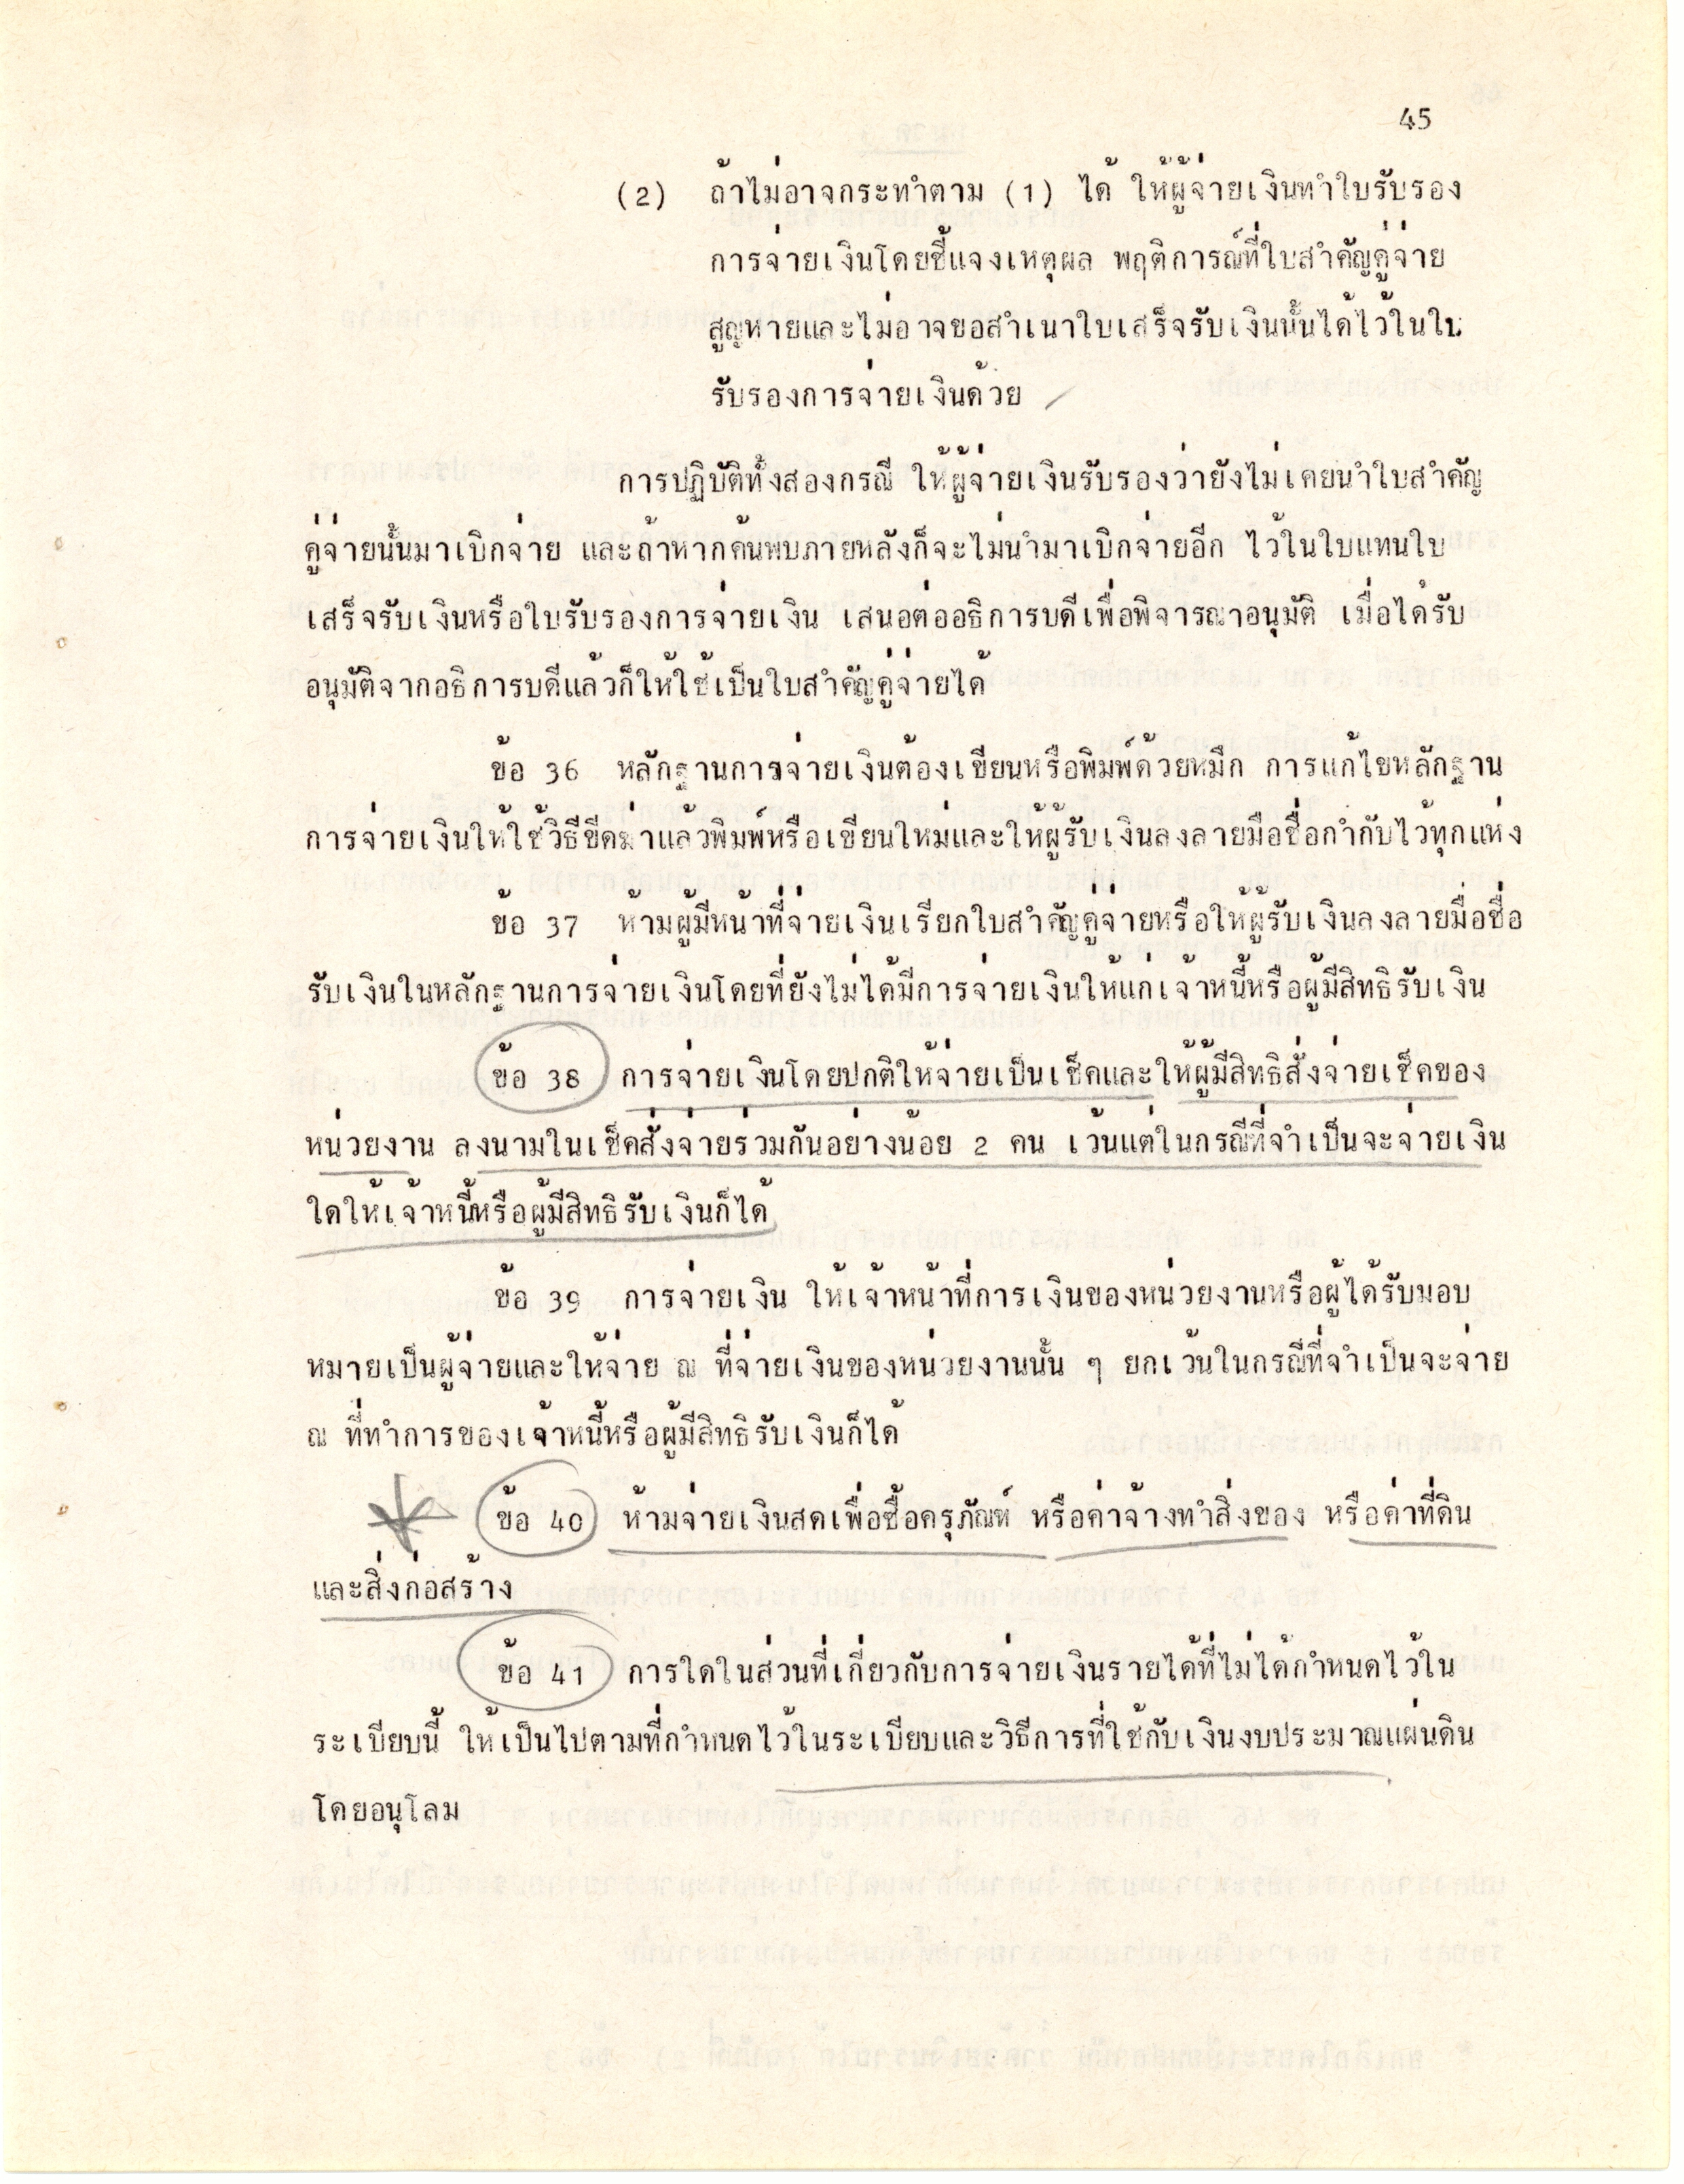 45
(2) ถ้าไม่อาจกระทำตาม (1) ได้ ให้ผู้จ่ายเงินทำใบรับรอง
การจ่ายเงินโดยชี้แจงเหตุผล พฤติการณ์ที่ใบสำคัญคู่จ่าย
สูญหายและไม่อาจขอสำเนาใบเสร็จรับเงินนั้นได้ไว้ในใบ
รับรองการจ่ายเงินด้วย
การปฏิบัติทั้งสองกรณี ให้ผู้จ่ายเงินรับรองว่ายังไม่เคยนำใบสำคัญ
คู่จ่ายนั้นมาเบิกจ่าย และถ้าหากค้นพบภายหลังก็จะไม่นำมาเบิกจ่ายอีก ไว้ในใบแทนใบ
เสร็จรับเงินหรือใบรับรองการจ่ายเงิน เสนอต่ออธิการบดีเพื่อพิจารณาอนุมัติ เมื่อได้รับ
อนุมัติจากอธิการบดีแล้วก็ให้ใช้เป็นใบสำคัญคู่จ่ายได้
ข้อ 36 หลักฐานการจ่ายเงินต้องเขียนหรือพิมพ์ด้วยหมึก การแก้ไขหลักฐาน
การจ่ายเงินให้ใช้วิธีขีดฆ่าแล้วพิมพ์หรือเขียนใหม่และให้ผู้รับเงินลงลายมือชื่อกำกับไว้ทุกแห่ง
ข้อ 37 ห้ามผู้มีหน้าที่จ่ายเงินเรียกใบสำคัญคู่จ่ายหรือให้ผู้รับเงินลงลายมือชื่อ
รับเงินในหลักฐานการจ่ายเงินโดยที่ยังไม่ได้มีการจ่ายเงินให้แก่เจ้าหนี้หรือผู้มีสิทธิรับเงิน
ข้อ 38 การจ่ายเงินโดยปกติให้จ่ายเป็นเช็คและให้ผู้มีสิทธิสั่งจ่ายเช็คของ
หน่วยงาน ลงนามในเช็คสั่งจ่ายร่วมกันอย่างน้อย 2 คน เว้นแต่ในกรณีที่จำเป็นจะจ่ายเงิน
ใดให้เจ้าหนี้หรือผู้มีสิทธิรับเงินก็ได้
ข้อ 39 การจ่ายเงิน ให้เจ้าหน้าที่การเงินของหน่วยงานหรือผู้ได้รับมอบ
หมายเป็นผู้จ่ายและให้จ่าย ณ ที่จ่ายเงินของหน่วยงานนั้น ๆ ยกเว้นในกรณีที่จำเป็นจะจ่าย
ณ ที่ทำการของเจ้าหนี้หรือผู้มีสิทธิรับเงินก็ได้
ข้อ 40 ห้ามจ่ายเงินสดเพื่อซื้อครุภัณฑ์ หรือค่าจ้างทำสิ่งของ หรือค่าที่ดิน
และสิ่งก่อสร้าง
ข้อ 41 การใดในส่วนที่เกี่ยวกับการจ่ายเงินรายได้ที่ไม่ได้กำหนดไว้ใน
ระเบียบนี้ ให้เป็นไปตามที่กำหนดไว้ในระเบียบและวิธีการที่ใช้กับเงินงบประมาณแผ่นดิน
โดยอนุโลม